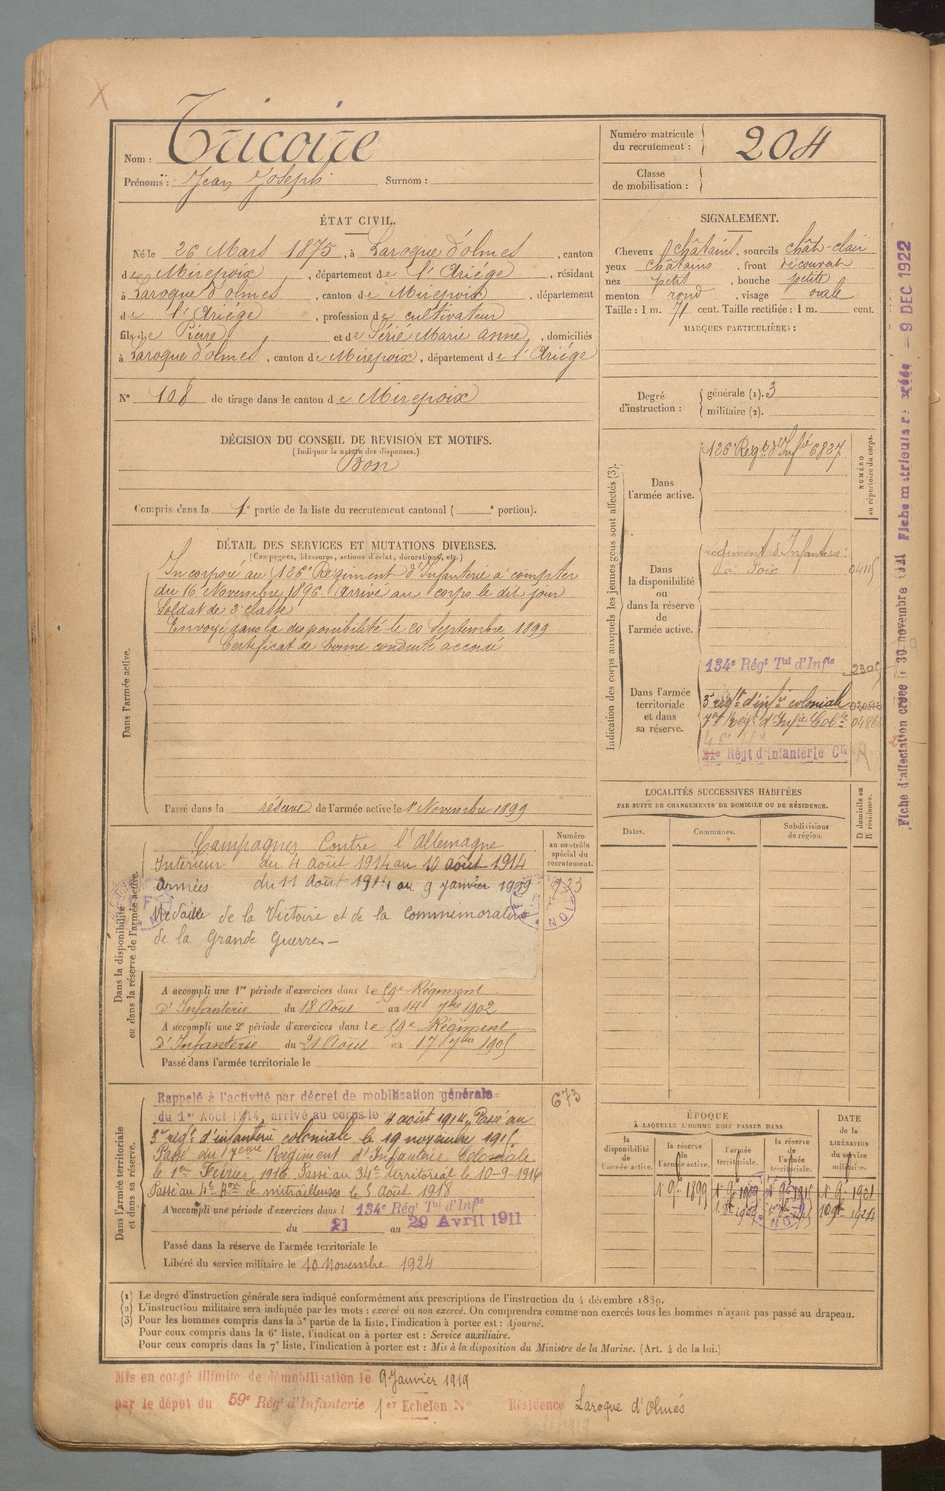 Nom : Tricoire
Prénoms : Jean Joseph Surnom :
Numéro matricule
du recrutement : 204
Classe
de mobilisation :
ÉTAT CIVIL.
Né le 26 Mars 1875, à Laroque d'olmes, canton
de Mirepoix, département de l'Ariége, résidant
à Laroque d'olmes, canton de Mirepoix, département
de l'Ariége, profession de cultivateur
fils de Pierre et de Sérié Marie Anne, domiciliés
à Laroque d'olmes, canton de Mirepoix, département de l'Ariége
N° 108 de tirage dans le canton de Mirepoix
SIGNALEMENT.
Cheveux châtains, sourcils chât-clair
yeux châtains, front découvert
nez petit, bouche petite
menton rond, visage ovale
Taille : 1 m. 71 cent. Taille rectifiée : 1 m. cent.
MARQUES PARTICULIÈRES :
Degré
d'instruction :
générale (1). 3
militaire (2).
DÉCISION DU CONSEIL DE REVISION ET MOTIFS.
(Indiquer la nature des dispenses.)
Bon
Compris dans la 1e partie de la liste du recrutement cantonal ( e portion).
DÉTAIL DES SERVICES ET MUTATIONS DIVERSES.
(Campagnes, blessures, actions d'éclat, décorations, etc.)
Dans l'armée active.
Incorporé au 126e Régiment d'Infanterie à compter
du 16 Novembre 1896. Arrivé au corps le dit jour
Soldat de 2e classe
Envoyé dans la disponibilité le 20 Septembre 1899
Certificat de bonne conduite accordé
Passé dans la réserve de l'armée active le 1er Novembre 1899
Indication des corps auxquels les jeunes gens sont affectés (3).
NUMÉRO
au répertoire du corps.
Dans
l'armée active.
126 Régt d'Infie 6827
Dans
la disponibilité
ou
dans la réserve
de
l'armée active.
régiment d'Infanterie
à Foix
Dans l'armée
territoriale
et dans
sa réserve.
134e Régt Tal d'Infie
3e régt d'infie coloniale
7e Régt d'Infie Colle
Régt d'Infanterie Cle
Fiche d'affectation créée le 30 novembre 1921
Fiche matriculaire créée - 9 DEC 1922
LOCALITÉS SUCCESSIVES HABITÉES
PAR SUITE DE CHANGEMENTS DE DOMICILE OU DE RÉSIDENCE.
Dates.
Communes.
Subdivisions
de région.
D domicile ou
R résidence.
Dans la disponibilité
ou dans la réserve de l'armée active.
Numéro
au contrôle
spécial du
recrutement.
Campagnes Contre l'Allemagne
Intérieur du 4 août 1914 au 10 août 1914
armées du 11 Août 1914 au 9 janvier 1919
Médaille de la Victoire et de la Commémorative
de la Grande Guerre.-
A accompli une 1re période d'exercices dans le 59e Régiment
d'Infanterie du 18 Août au 14 7bre 1902
A accompli une 2e période d'exercices dans le 59e Régiment
d'Infanterie du 21 Août au 17 7bre 1905
Passé dans l'armée territoriale le
Dans l'armée territoriale
et dans sa réserve.
673
Rappelé à l'activité par décret de mobilisation générale
du 1er Août 1914, arrivé au corps le 4 août 1914. Passé au
3e régt d'infanterie coloniale le 19 novembre 1915
Passé au 7eme Régiment d'Infanterie Coloniale
le 1er Février 1916 Passé au 34e territorial le 10-9-1916
Passé au 4e Bon de mitrailleuses le 5 Août 1918
A accompli une période d'exercices dans l 134e Régt Tal d'Infie
du 21 au 29 Avril 1911
Passé dans la réserve de l'armée territoriale le
Libéré du service militaire le 10 novembre 1924
ÉPOQUE
À LAQUELLE L'HOMME DOIT PASSER DANS
la
disponibilité
de
l'armée active.
la réserve
de
l'armée active.
l'armée
territoriale.
la réserve
de
l'armée
territoriale.
DATE
de la
LIBÉRATION
du service
militaire.
(1) Le degré d'instruction générale sera indiqué conformément aux prescriptions de l'instruction du 4 décembre 1889.
(2) L'instruction militaire sera indiquée par les mots : exercé ou non exercé. On comprendra comme non exercés tous les hommes n'ayant pas passé au drapeau.
(3) Pour les hommes compris dans la 5e partie de la liste, l'indication à porter est : Ajourné.
Pour ceux compris dans la 6e liste, l'indication à porter est : Service auxiliaire.
Pour ceux compris dans la 7e liste, l'indication à porter est : Mis à la disposition du Ministre de la Marine. (Art. 4 de la loi.)
Mis en congé illimité de démobilisation le 9 Janvier 1919
par le dépôt du 59e Régt d'Infanterie 1er Echelon N° Résidence Laroque d'Olmés